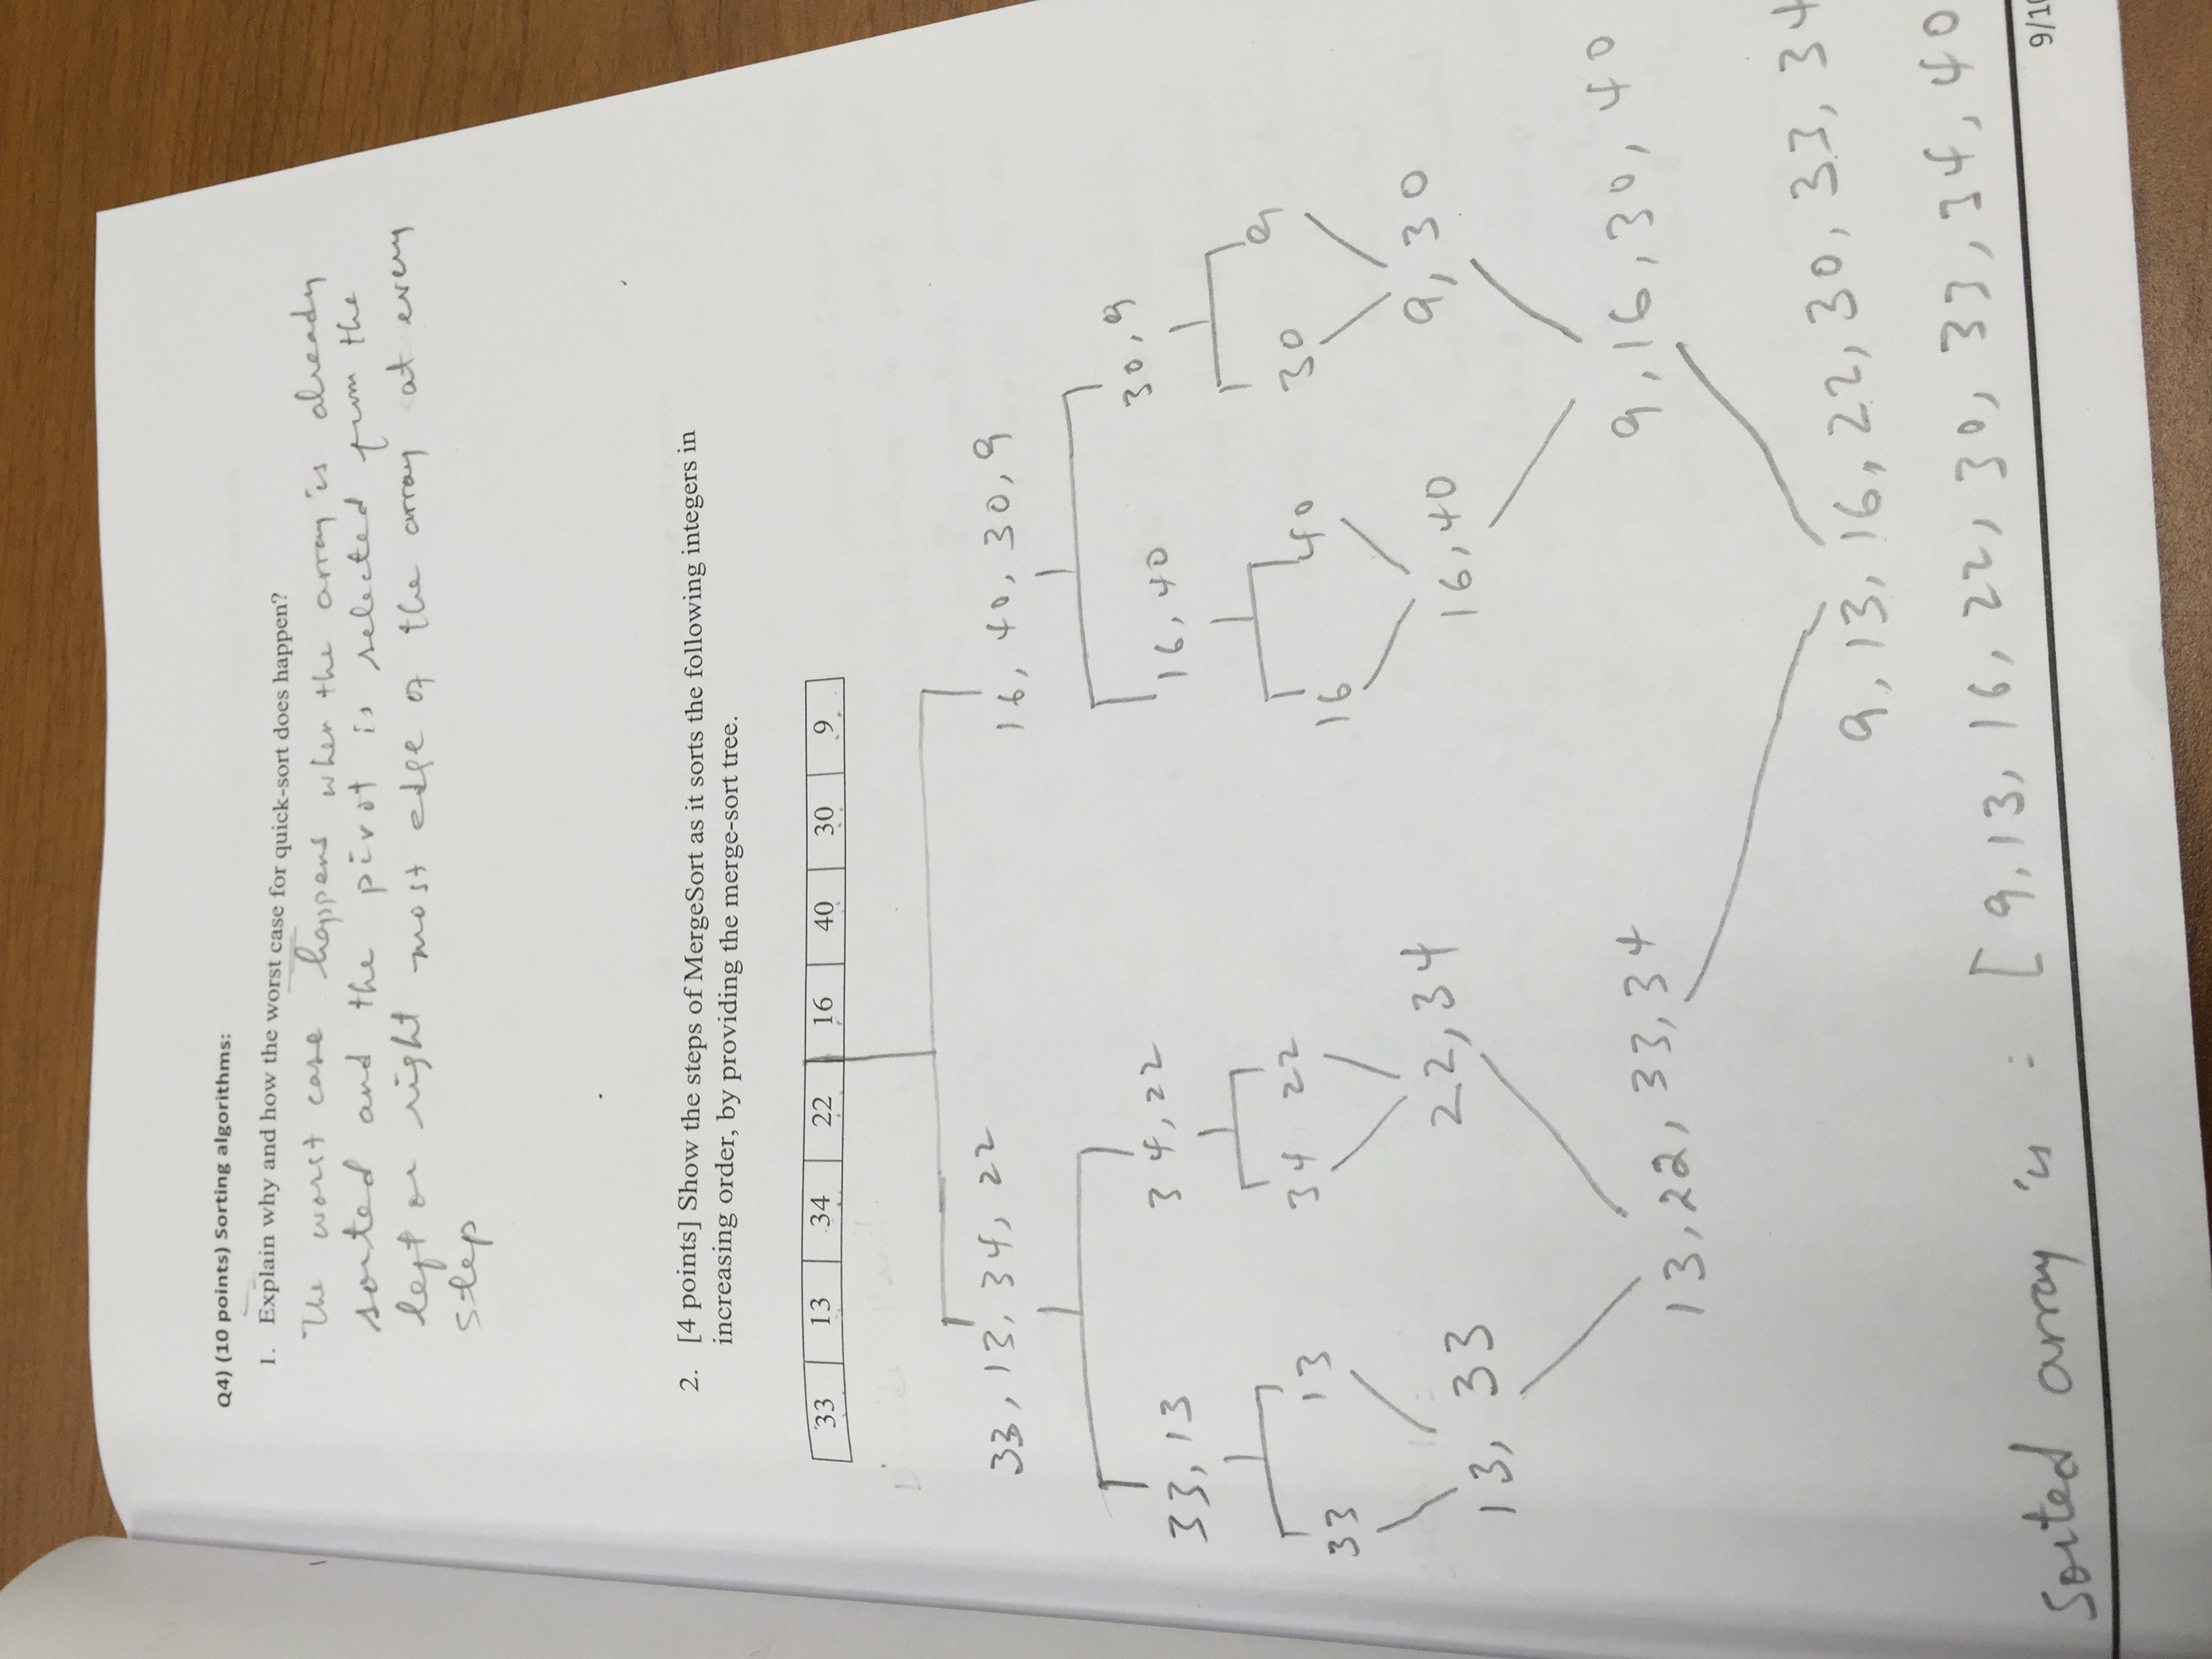 Q4) (10 points) Sorting algorithms:
1. Explain why and how the worst case for quick-sort does happen?
The worst case happens when the array is already
sorted and the pivot is selected from the
left or right most edge of the array at every
step
2. [4 points] Show the steps of MergeSort as it sorts the following integers in
increasing order, by providing the merge-sort tree.
33 13 34 22 16 40 30 9
33, 13, 34, 22 16, 40, 30, 9
33, 13 34, 22 16, 40 30, 9
33 13 34 22 16 40 30 9
13, 33 22, 34 16, 40 9, 30
13, 22, 33, 34 9, 16, 30, 40
9, 13, 16, 22, 30, 33, 34
Sorted array is : [ 9, 13, 16, 22, 30, 33, 34, 40
9/10